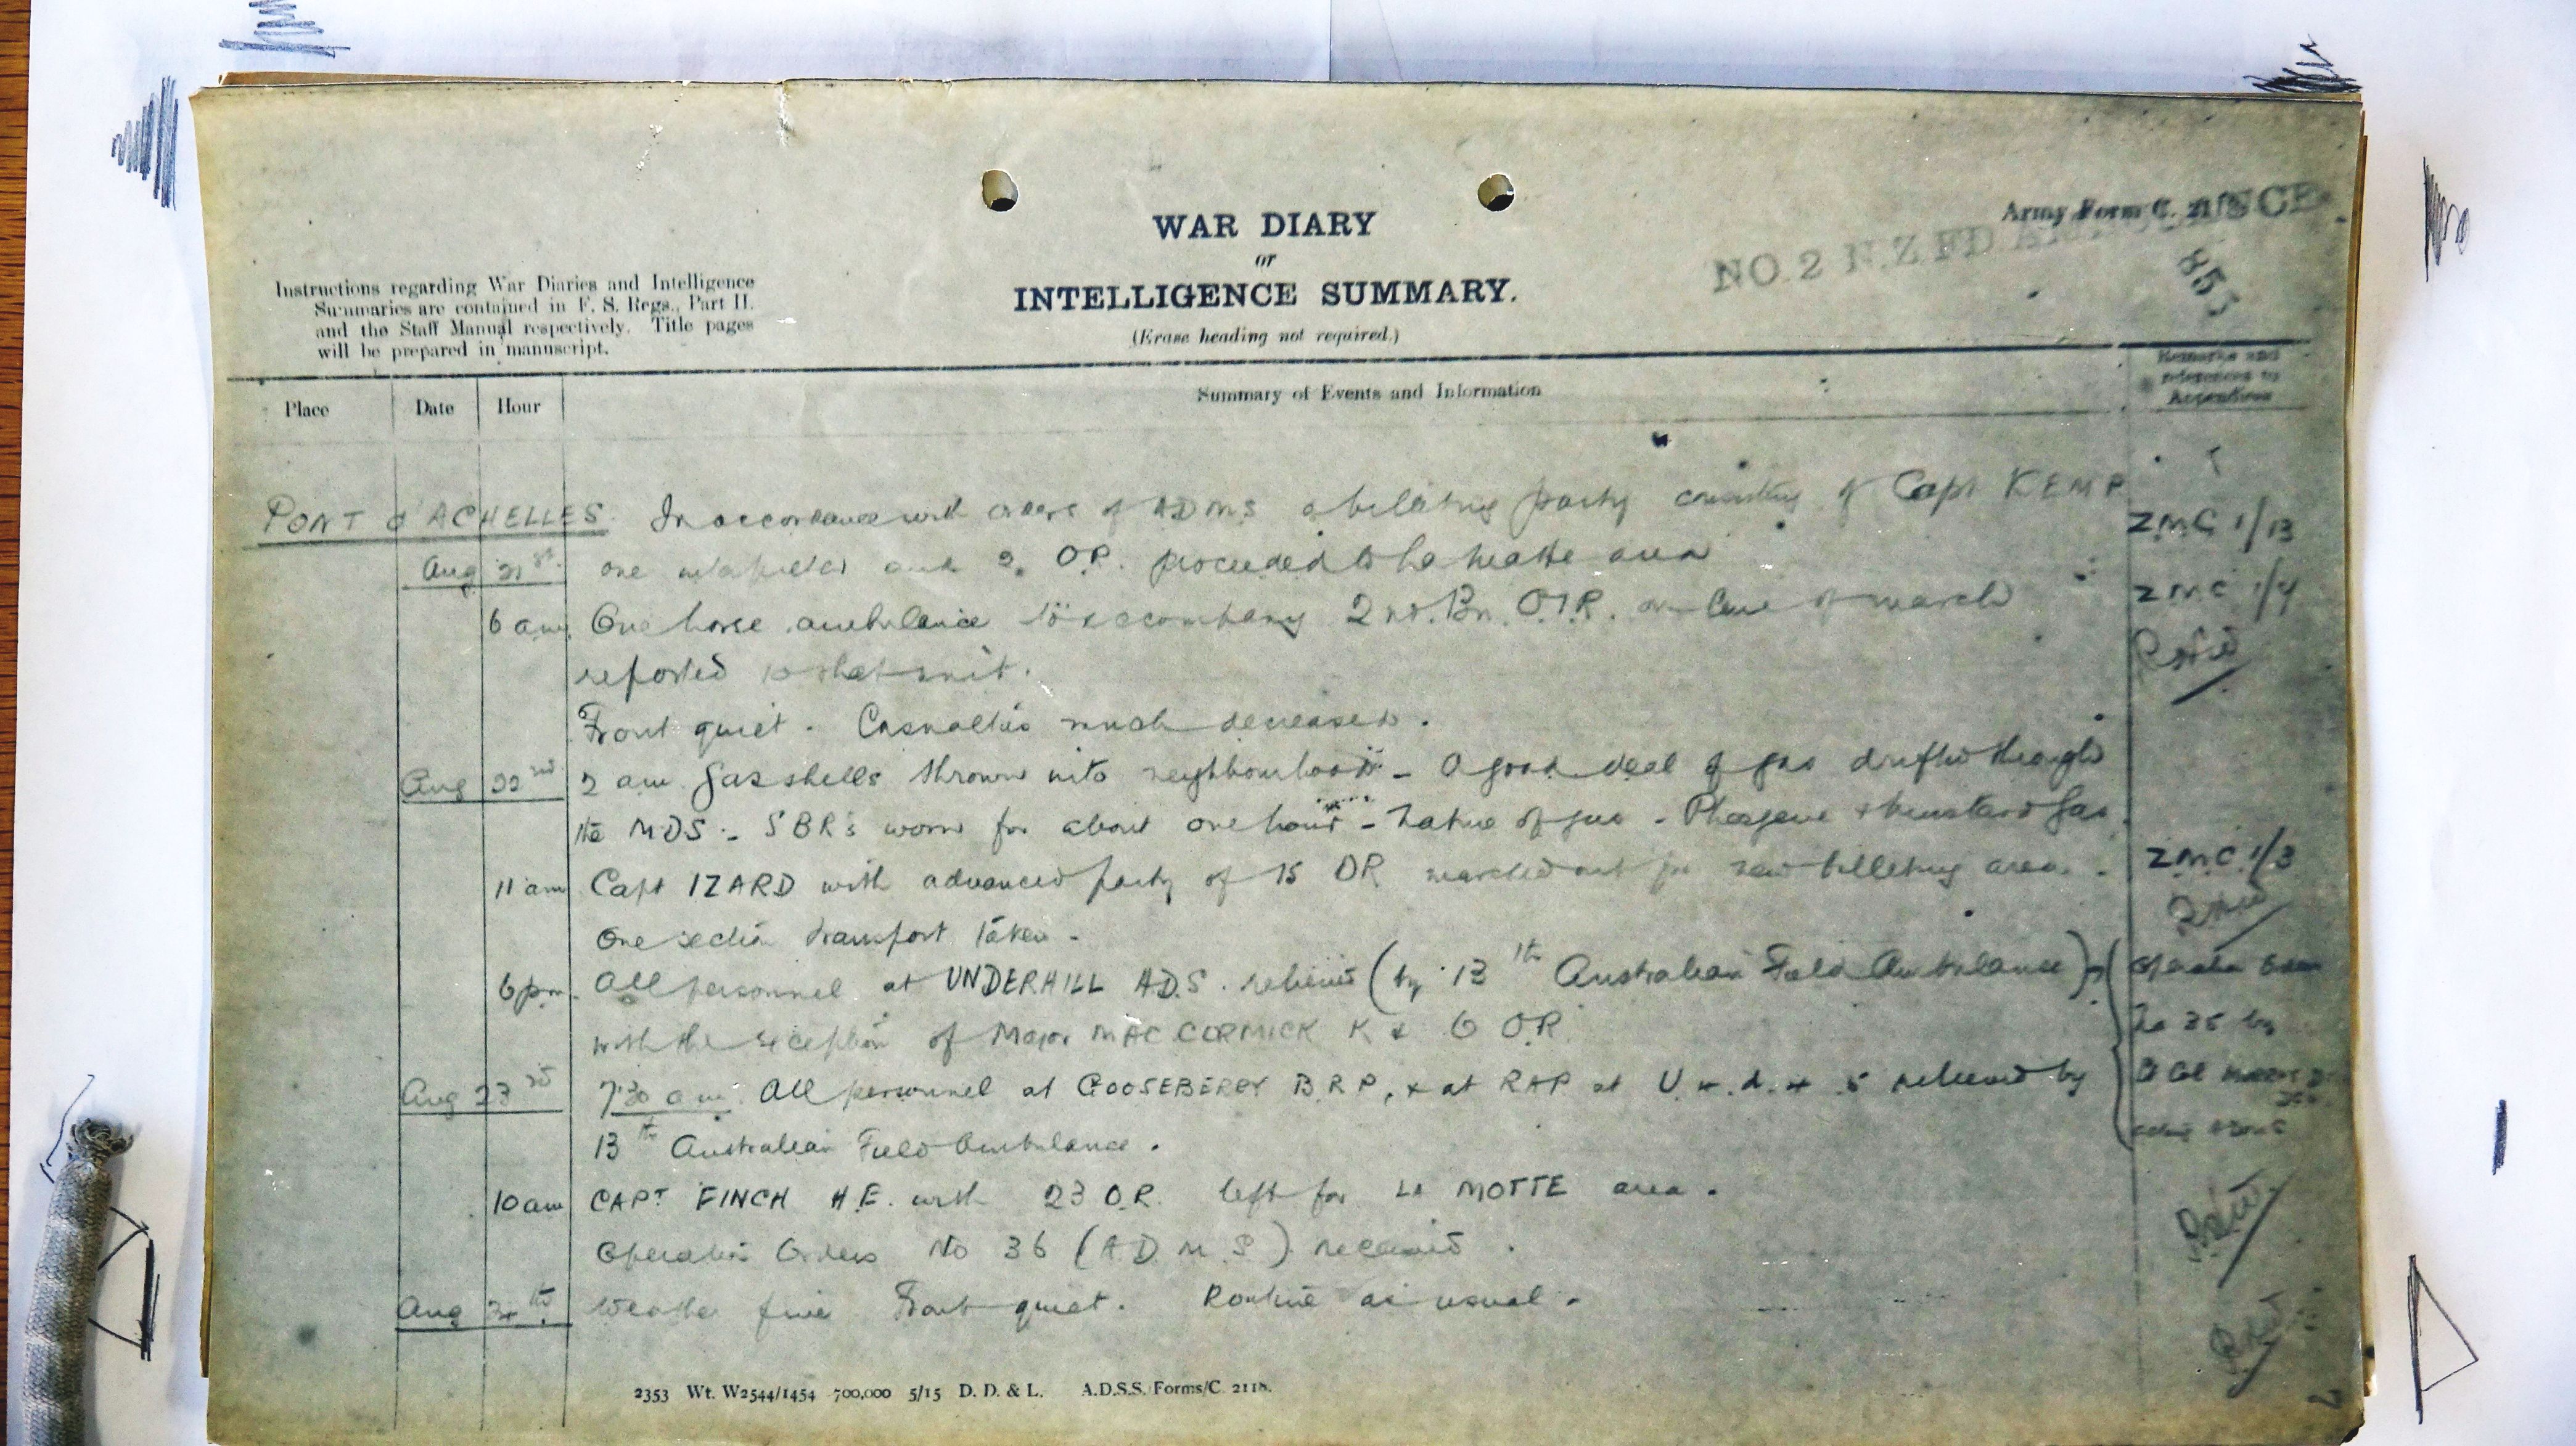 Army Form C. 2118
NO. 2 N.Z. FD AMBULANCE
855
WAR DIARY
or
INTELLIGENCE SUMMARY.
(Erase heading not required.)
Instructions regarding War Diaries and Intelligence
Summaries are contained in F. S. Regs., Part II.
and the Staff Manual respectively. Title pages
will be prepared in manuscript.
Place Date Hour Summary of Events and Information Remarks and
references to
Appendices
PONT d'ACHELLES. In accordance with orders of ADMS a billeting party consisting of Capt KEMP ZMC 1/13
Aug 21st one interpreter and 2 O.R. proceeded to La Motte area
6 am One horse ambulance to accompany 2nd. Bn. O.I.R. on line of march ZMC 1/4
reported to that unit.
Front quiet. Casualties much decreased.
Aug 22nd 2 am. Gas shells thrown into neighbourhood - A good deal of gas drifted through
the MDS - SBR's worn for about one hour - Nature of gas - Phosgene & mustard gas.
11 am Capt IZARD with advanced party of 15 OR marched out for new billeting area. ZMC 1/3
One section transport taken.
6 pm. All personnel at UNDERHILL A.D.S. relieved (by 13th Australian Field Ambulance)
with the exception of Major MACCORMICK K & 6 O.R. No 35 by
Aug 23rd 7.30 am. All personnel at GOOSEBERRY B.R.P, & at RAP at relieved by
13th Australian Field Ambulance.
10 am CAPT FINCH H.E. with 23 O.R. left for LA MOTTE area.
Operation Orders No 36 (A.D.M.S) received.
Aug 24th Weather fine Front quiet. Routine as usual.
2353 Wt. W2544/1454 700,000 5/15 D. D. & L. A.D.S.S. Forms/C. 2118.